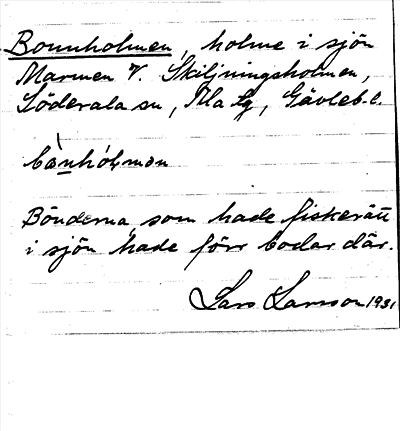 Bonnholmen, holme i sjön
Marmen V. Skiljningsholmen,
Söderala sn, Ma lg, Gävleb. l.
bànhólmən
Bönderna, som hade fiskerätt
i sjön hade förr bodar där.
Lars Larsson 1931